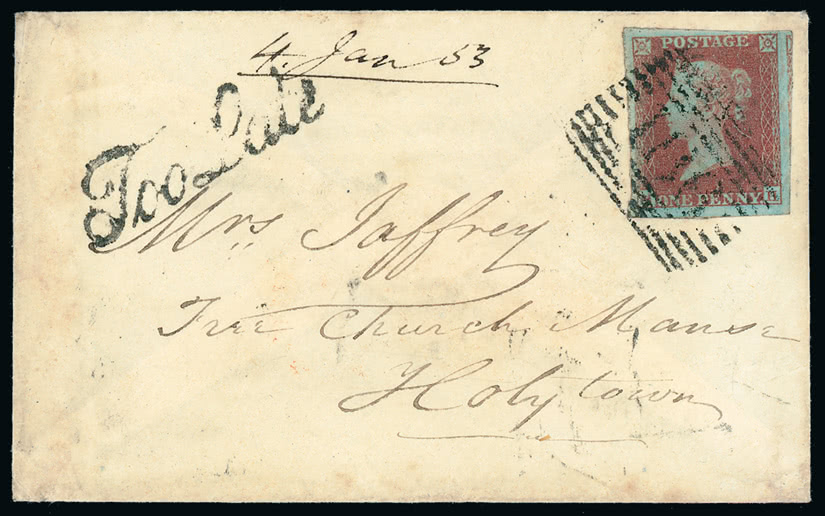 4. Jan 53
Too Late
POSTAGE
ONE PENNY
Mrs Jaffrey
Free Church Manse
Holytown